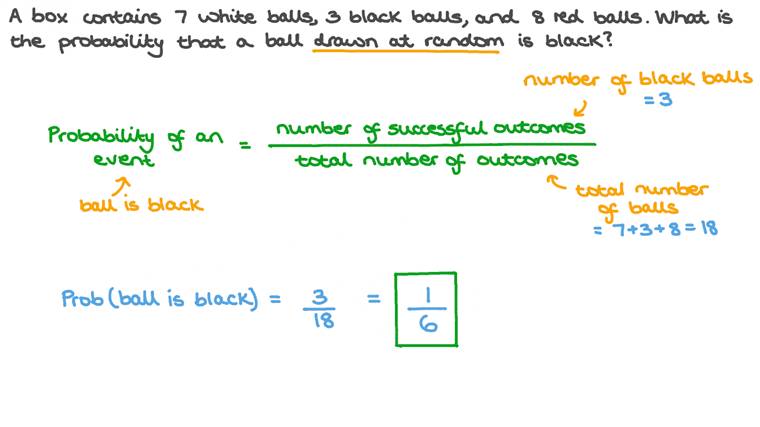 A box contains 7 white balls, 3 black balls, and 8 red balls. What is
the probability that a ball drawn at random is black?
number of black balls
= 3
Probability of an
event
=
number of successful outcomes
total number of outcomes
ball is black
total number
of balls
= 7+3+8 = 18
Prob (ball is black) = 3/18 = 1/6